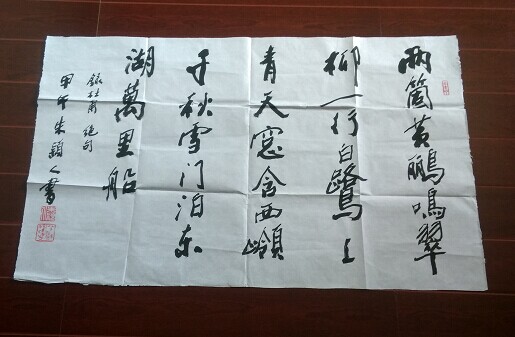 兩箇黄鸝鳴翠
柳一行白鷺上
青天窓含西嶺
千秋雪门泊东
湖萬里船
錄杜甫絕句
甲午朱頴人書